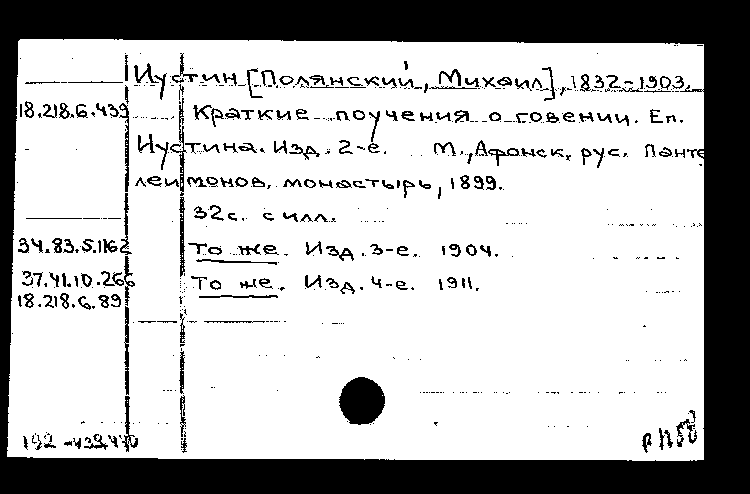 Иустин [Полянский, Михаил], 1832-1903.
18.218.6.439 Краткие поучения о говении. Еп.
Иустина. Изд. 2-е. М., Афонск. рус. Панте
леимонов. монастырь, 1899.
32с. с илл.
34.83.5.1162 То же. Изд. 3-е. 1904.
37.41.10.266 То же. Изд. 4-е. 1911.
18.218.6.89
192